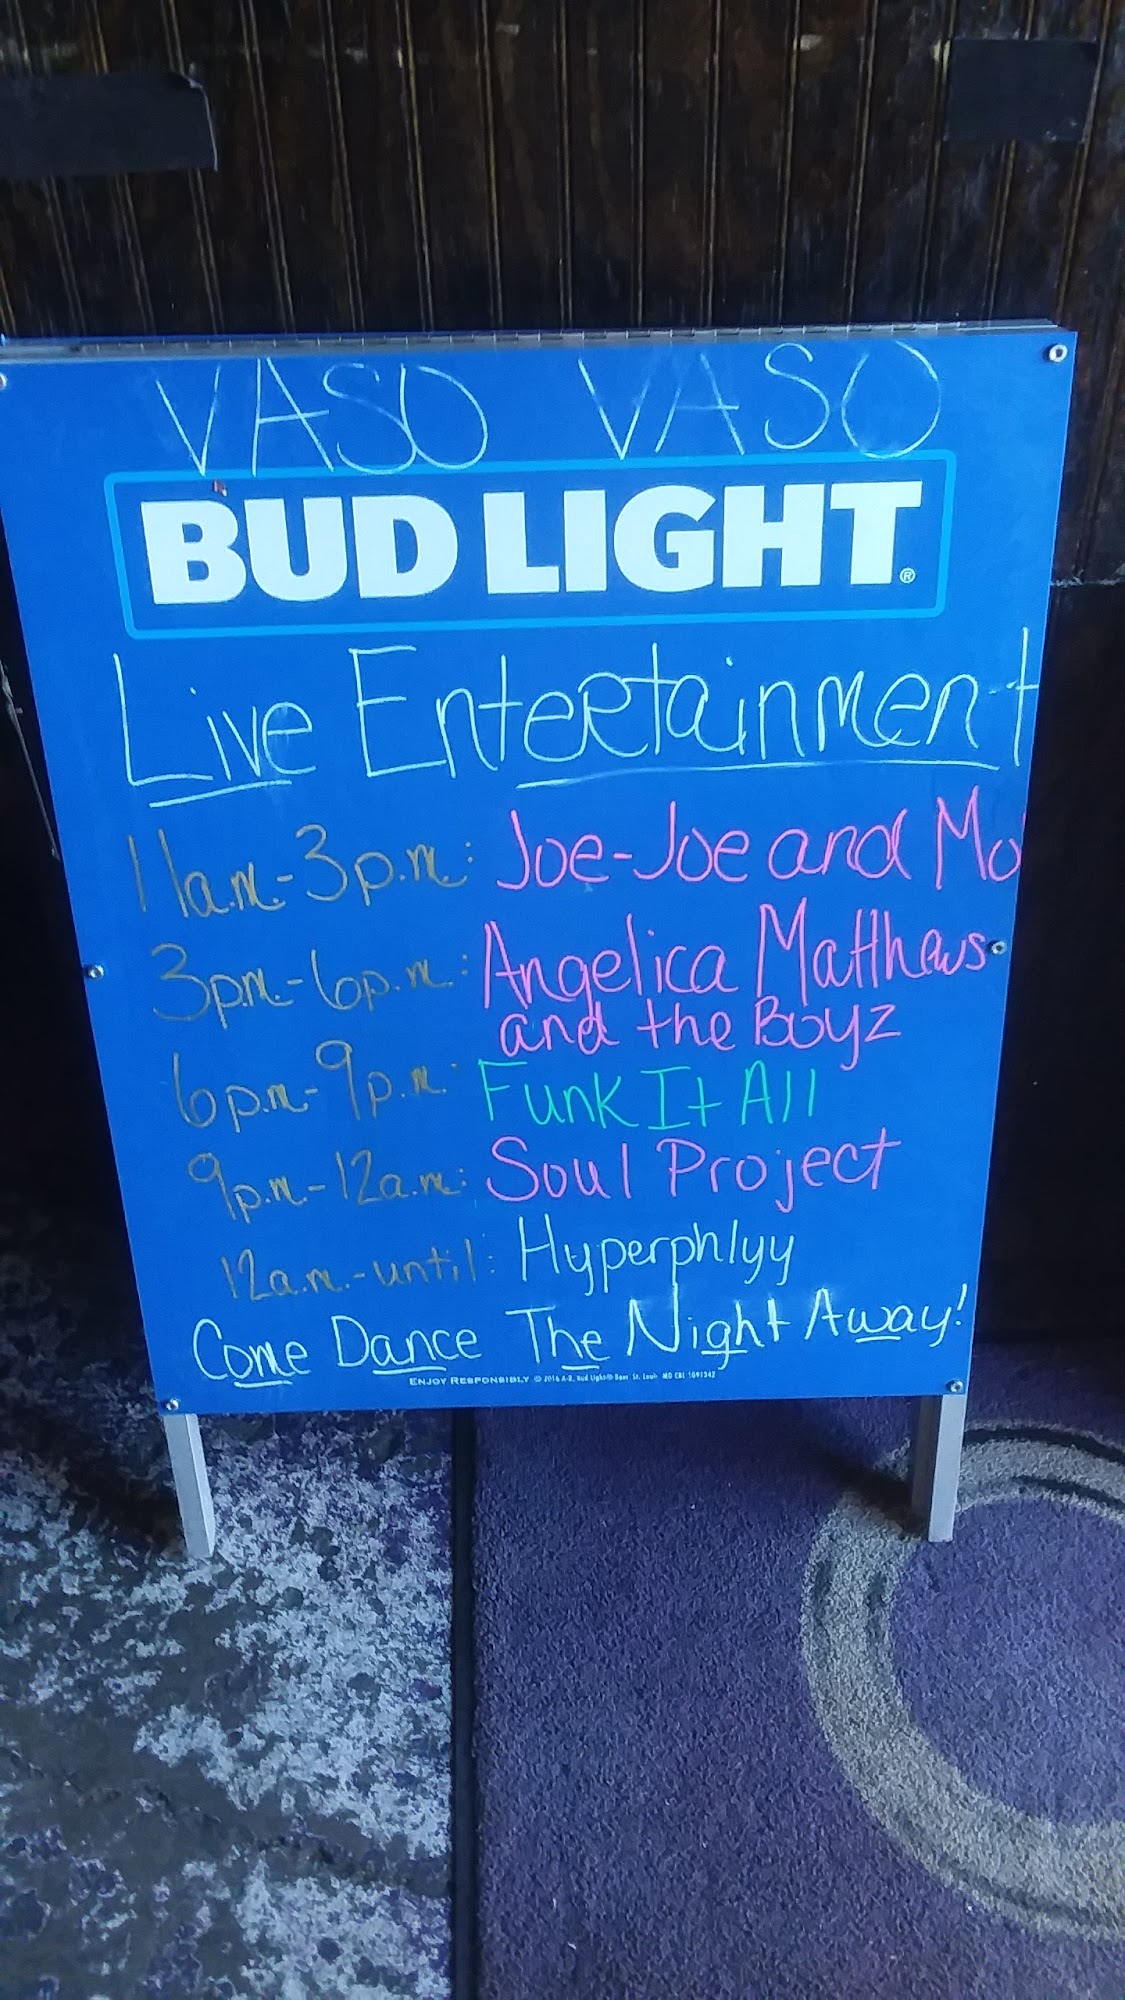 VASO VASO
BUD LIGHT®
Live Entertainment
11a.m.-3p.m.: Joe-Joe and Mo
3p.m.-6p.m.: Angelica Matthews
and the Boyz
6p.m.-9p.m.: Funk It All
9p.m.-12a.m.: Soul Project
12a.m.-until: Hyperphlyy
Come Dance The Night Away!
ENJOY RESPONSIBLY © 2016 A-B, Bud Light® Beer, St. Louis, MO